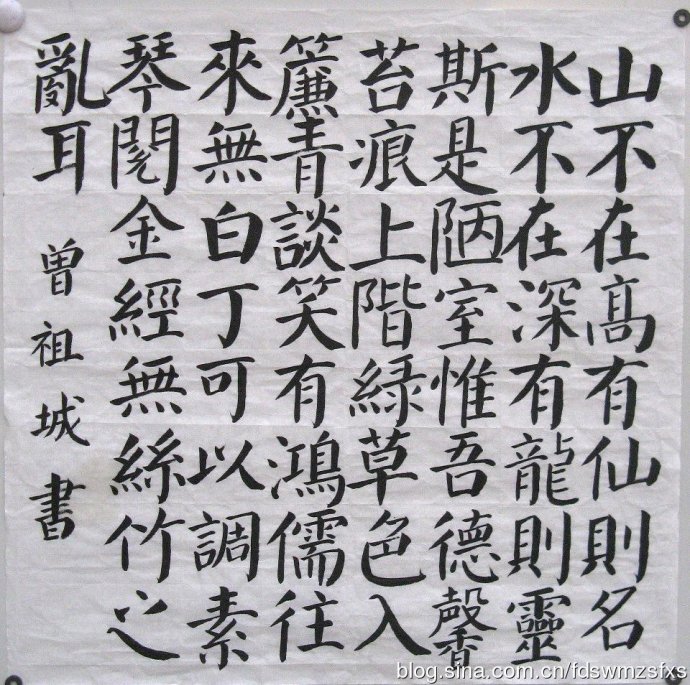 山不在高有仙則名
水不在深有龍則靈
斯是陋室惟吾德馨
苔痕上階緑草色入
簾青談笑有鴻儒往
來無白丁可以調素
琴閱金經無絲竹之
亂耳
曾祖城書
blog.sina.com.cn/fdswmzsfxs